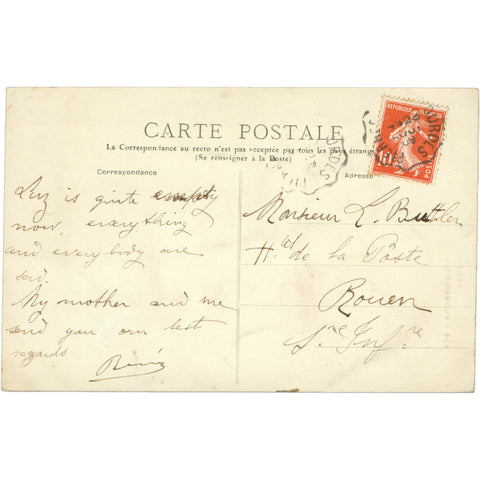 CARTE POSTALE
La Correspondance au recto n'est pas acceptée par tous les pays étrangers
(Se renseigner à la Poste)
Correspondance
Luz is quite empty
now, everything
and everybody are
sad.
My mother and me
send you our best
regards
René
Adresse
Monsieur L. Buttler
Hel de la Poste
Rouen
Sne Infre
10